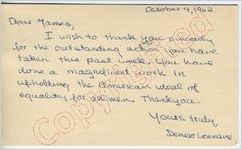 October 4, 1962
Dear James,
I wish to thank you sincerely
for the outstanding action you have
taken this past week. You have
done a magnificent work in
upholding the American ideal of
equality for all men. Thank you.
Yours truly
Denise Lennane
Copyrighted